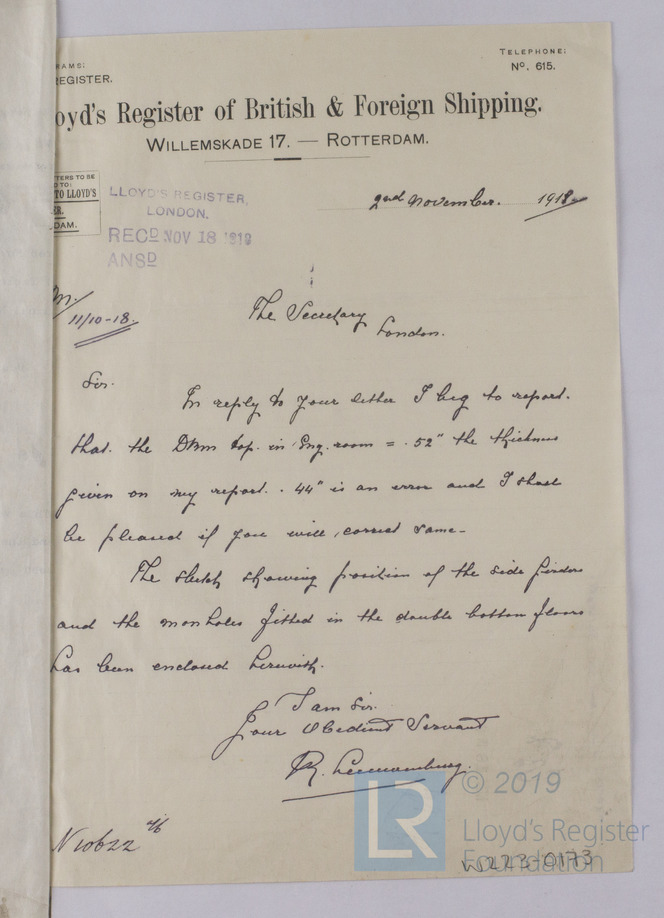 RAMS:
EGISTER.
TELEPHONE:
Nº. 615.
oyd's Register of British & Foreign Shipping.
WILLEMSKADE 17. — ROTTERDAM.
TERS TO BE
D TO:
TO LLOYD'S
ER.
DAM.
LLOYD'S REGISTER,
LONDON.
RECD NOV 18 1918
ANSD
2nd November. 1918
M/
11/10-18.
The Secretary
London.
Sir.
In reply to your letter I beg to report.
that the DBtm top. in Eng. room = .52" the thickness
given on my report. .44" is an error and I shall
be pleased if you will, correct same-
The sketch showing position of the side girders
and the manholes fitted in the double bottom floors
has been enclosed herewith.
I am Sir.
Your Obedient Servant
R.
© 2019
LR
Lloyd's Register
Foundation
W223-0173